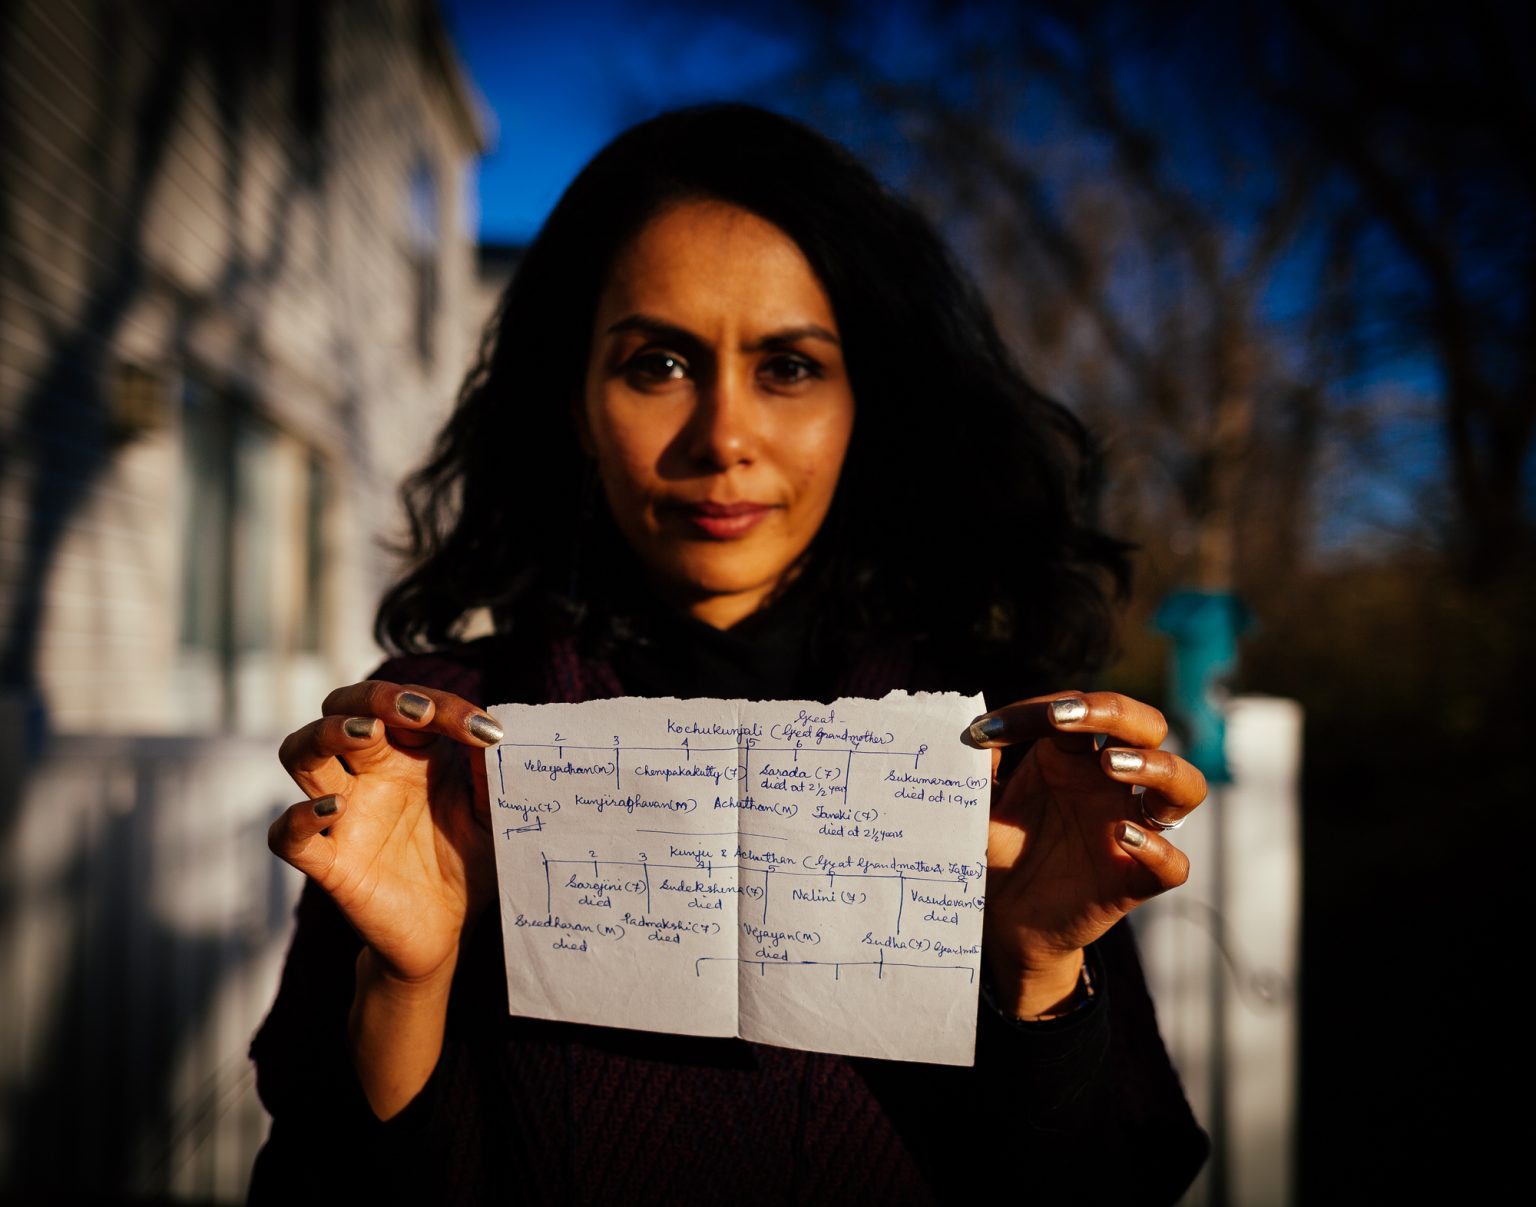 Great-
Kochukunjali (Great Grandmother)
2 3 4 5 6 7 8
Velayadhan(m) Chempakakutty(F) Sarada (F) Sukumaran(m)
died at 2 1/2 year died at 19 yrs
Kunju(F) Kunjiraghavan(m) Achuthan(m) Janaki (F)
died at 2 1/2 years
Kunju & Achuthan (Great Grandmother & Father)
2 3 4 5 6 7 8
Sarojini(F) Sudekshina(F) Nalini (F) Vasudevan(m)
died died died
Sreedharan(m) Padmakshi(F) Vijayan(m) Sudha(F)
died died died